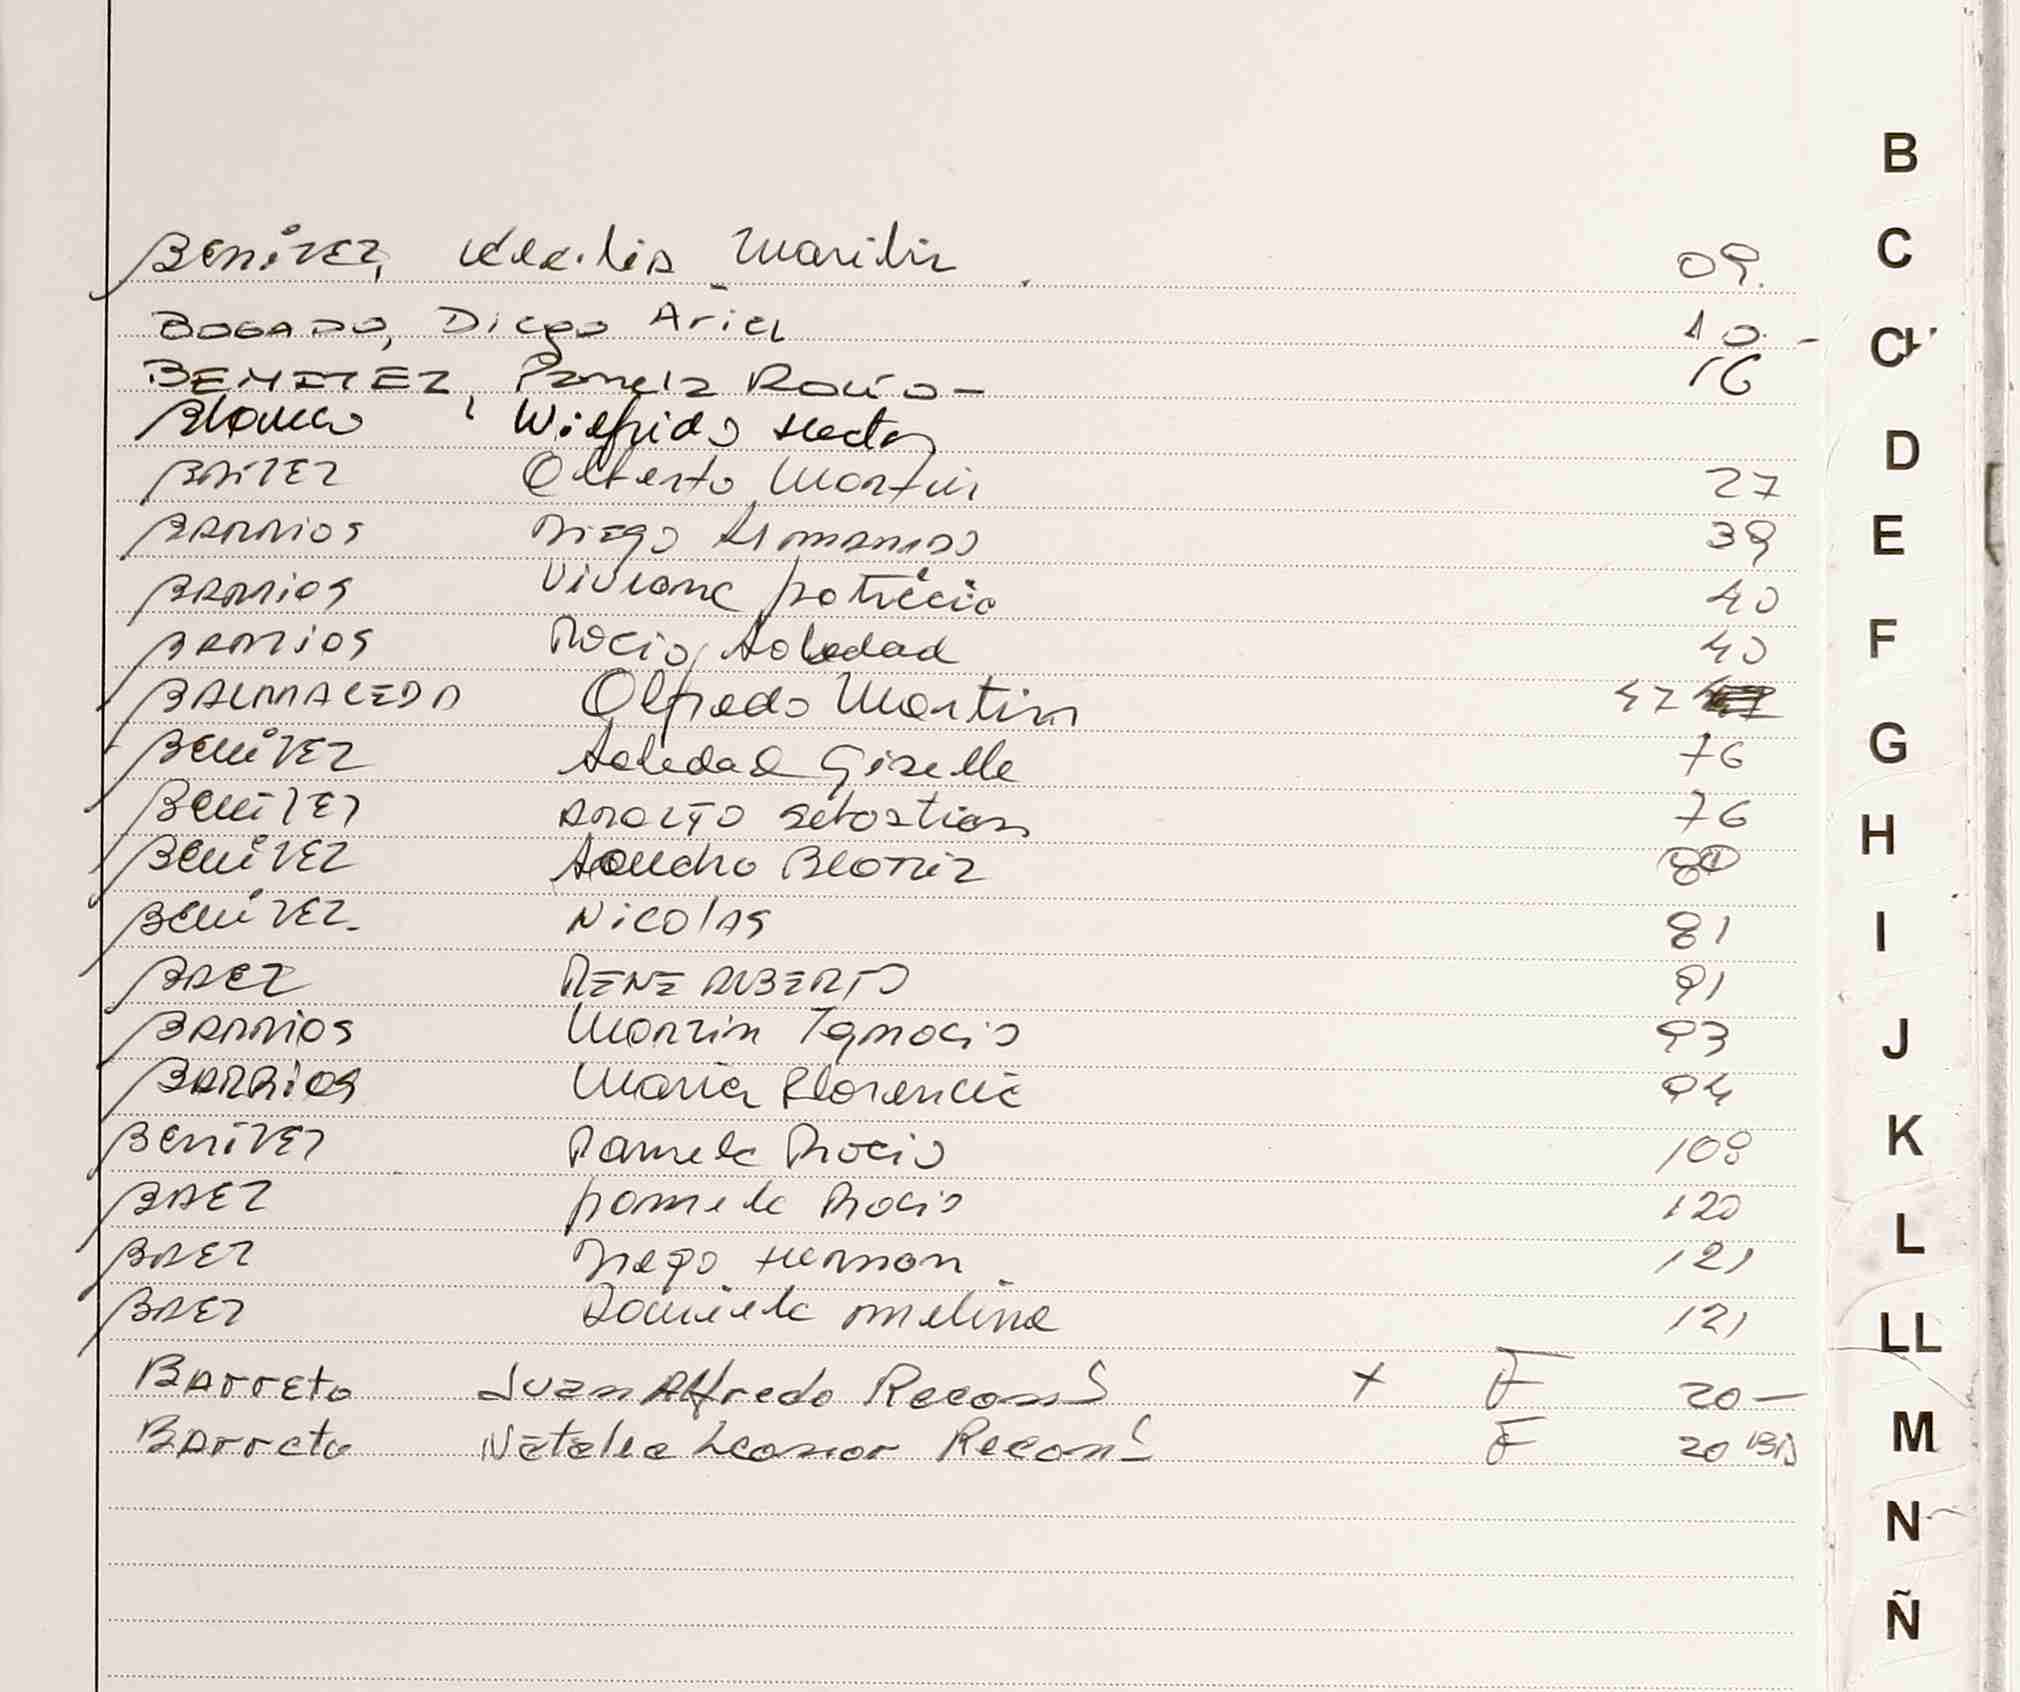 BENÍTEZ, Marilin 09.
BOGADO, Diego Ariel 10.-
BENITEZ, Pamela Rocío- 16
Blanco, Wilfrido Hector
BRITEZ Alberto Martin 27
BARRIOS Diego Armando 39
BARRIOS Viviana patricia 40
BARRIOS Rocio Soledad 40
BALMACEDA Alfredo Martin 47
BENITEZ Soledad Giselle 76
BENITEZ ADOLFO Sebastian 76
BENITEZ Sandro Beatriz 80
BENITEZ. NICOLAS 81
BAEZ RENE ALBERTO 91
BARRIOS Martin Ignacio 93
BARRIOS Maria Florencia 94
BENITEZ Pamela Rocio 109
BAEZ pamela Rocio 120
BAEZ Diego Hernan 121
BAEZ Daniela melina 121
Barreto Juan Alfredo Recons + F 20-
Barreto Natalia Leonor Recons F 20 BIS
B
C
CH
D
E
F
G
H
I
J
K
L
LL
M
N
Ñ